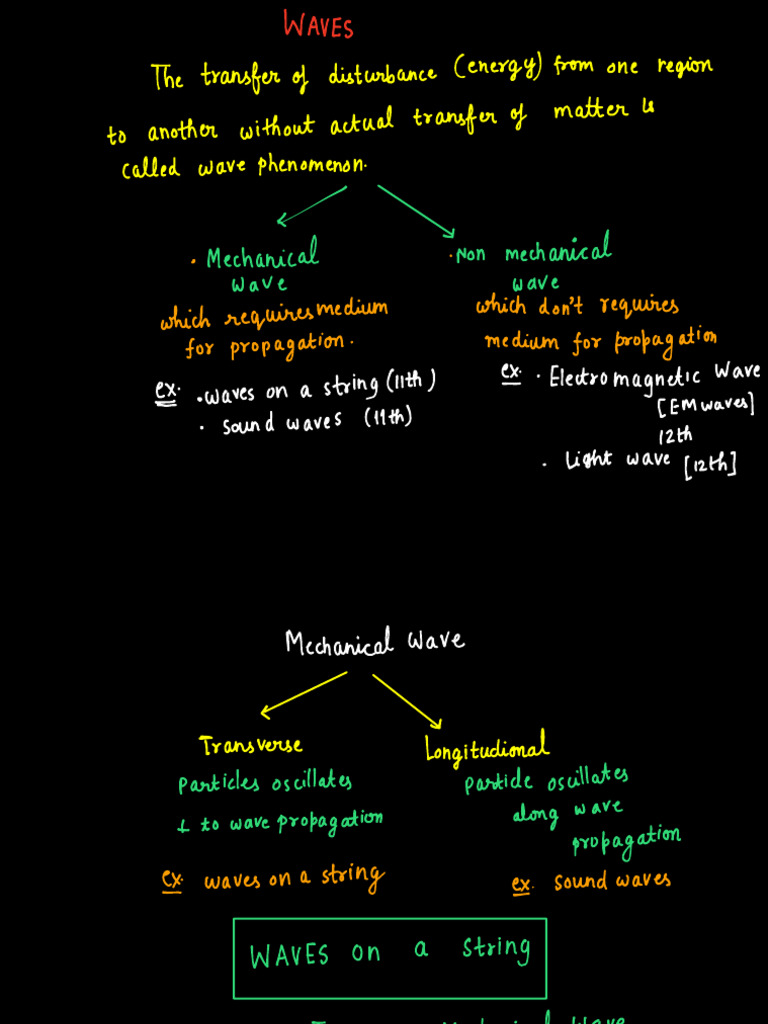 WAVES
The transfer of disturbance (energy) from one region
to another without actual transfer of matter is
called wave phenomenon.
· Mechanical
wave
· Non mechanical
wave
which requires medium
for propagation.
which don't requires
medium for propagation
ex: · waves on a string (11th)
· sound waves (11th)
ex: · Electromagnetic Wave
[EM waves]
12th
· Light wave [12th]
Mechanical Wave
Transverse
Longitudional
Particles oscillates
⊥ to wave propagation
particle oscillates
along wave
propagation
ex: waves on a string
ex: sound waves
WAVES on a string